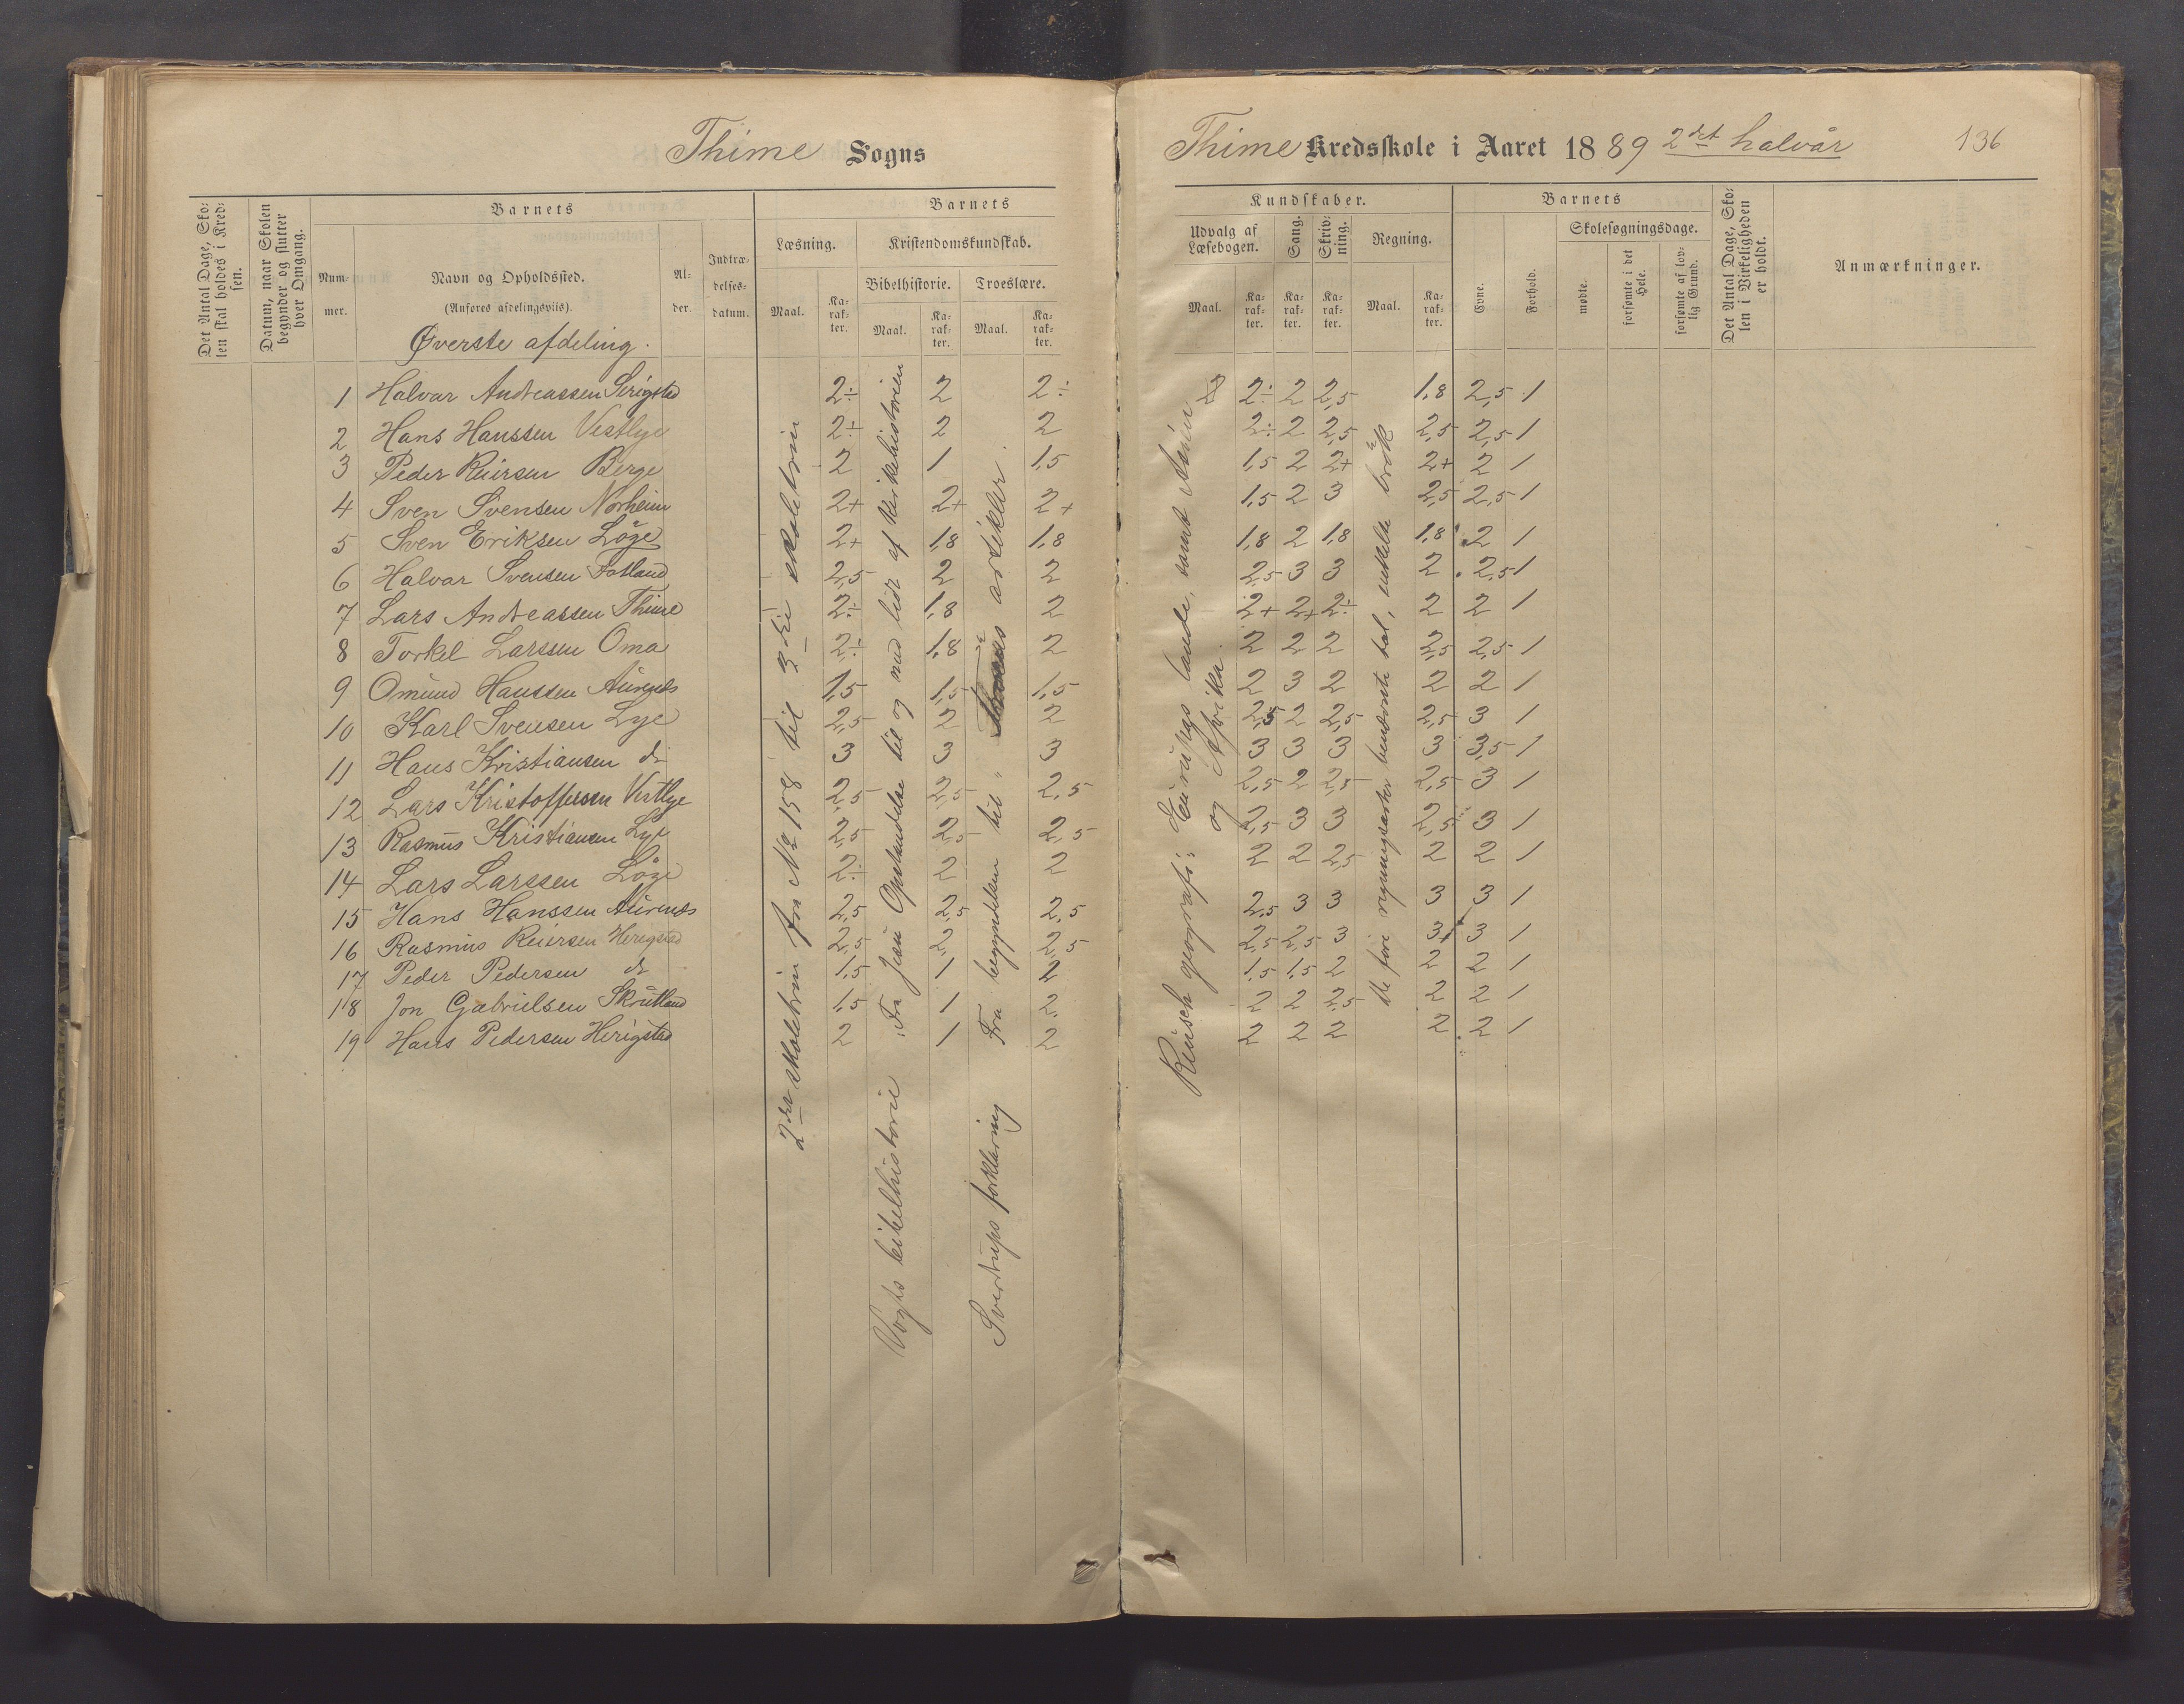 Thime Sogns
Det Antal Dage, Skolen skal holdes i Kredsen.
Datum, naar Skolen begynder og slutter hver Omgang.
Barnets
Barnets
Nummer.
Navn og Opholdssted.
(Anføres afdelingsviis).
Alder.
Indtrædelsesdatum.
Læsning.
Kristendomskundskab.
Bibelhistorie. Troeslære.
Maal. Karakter. Maal. Karakter. Maal. Karakter.
Øverste afdeling.
1 Halvar Andreassen Serigstad 2÷ 2 2÷
2 Hans Hanssen Vestlye 2÷ 2 2
3 Peder Reiersen Berge 2 1 1,5
4 Sven Svensen Norheim 2+ 2+ 2+
5 Sven Eriksen Löge 2+ 1,8 1,8
6 Halvar Svensen Fotland 2,5 2 2
7 Lars Andreassen Thime 2÷ 1,8 2
8 Torkel Larssen Oma 2÷ 1,8 2
9 Omund Hanssen Aurenes 1,5 1,5 1,5
10 Karl Svensen Lye 2,5 2 2
11 Hans Kristiansen do 3 3 3
12 Lars Kristoffersen Vestlye 2,5 2,5 2,5
13 Rasmus Kristiansen Lye 2,5 2,5 2,5
14 Lars Larssen Löge 2÷ 2 2
15 Hans Hanssen Aurenes 2,5 2,5 2,5
16 Rasmus Reiersen Herigstad 2,5 2 2,5
17 Peder Pedersen do 1,5 1 2
18 Jon Gabrielsen Skrutland 1,5 1 2
19 Hans Pedersen Herigstad 2 1 2
2det skoletrin fra No 158 til 3die skoletrin
Vogts bibelhistorie Fra Jesu Opstandelse til og med lidt af kirkehistorien
Sverdrups forklaring Fra begyndelsen til artikler.
Thime Kredsskole i Aaret 1889 2det halvår 136
Kundskaber.
Barnets
Udvalg af Læsebogen.
Sang.
Skrivning.
Regning.
Evne.
Forhold.
Skolesøgningsdage.
mødte.
forsømte i det Hele.
forsømte af lovlig Grund.
Det Antal Dage, Skolen i Virkeligheden er holdt.
Anmærkninger.
Maal. Karakter. Karakter. Karakter. Maal. Karakter.
2÷ 2 2,5 1,8 2,5 1
2÷ 2 2,5 2,5 2,5 1
1,5 2 2+ 2+ 2 1
1,5 2 3 2,5 2,5 1
1,8 2 1,8 1,8 2 1
2,5 3 3 2 2,5 1
2+ 2+ 2÷ 2 2 1
2 2 2 2,5 2,5 1
2 3 2 2 2 1
2,5 2 2,5 2,5 3 1
3 3 3 3 3,5 1
2,5 2 2,5 2,5 3 1
2,5 3 3 2,5 3 1
2 2 2,5 2 2 1
2,5 3 3 3 3 1
2,5 2,5 3 3+ 3 1
1,5 1,5 2 2 2 1
2 2 2,5 2 2 1
2 2 2 2 2 1
Reusch geografi: Europas lande, samt Asien
og Afrika.
De fire regningsarter benævnte tal, enkelte brök